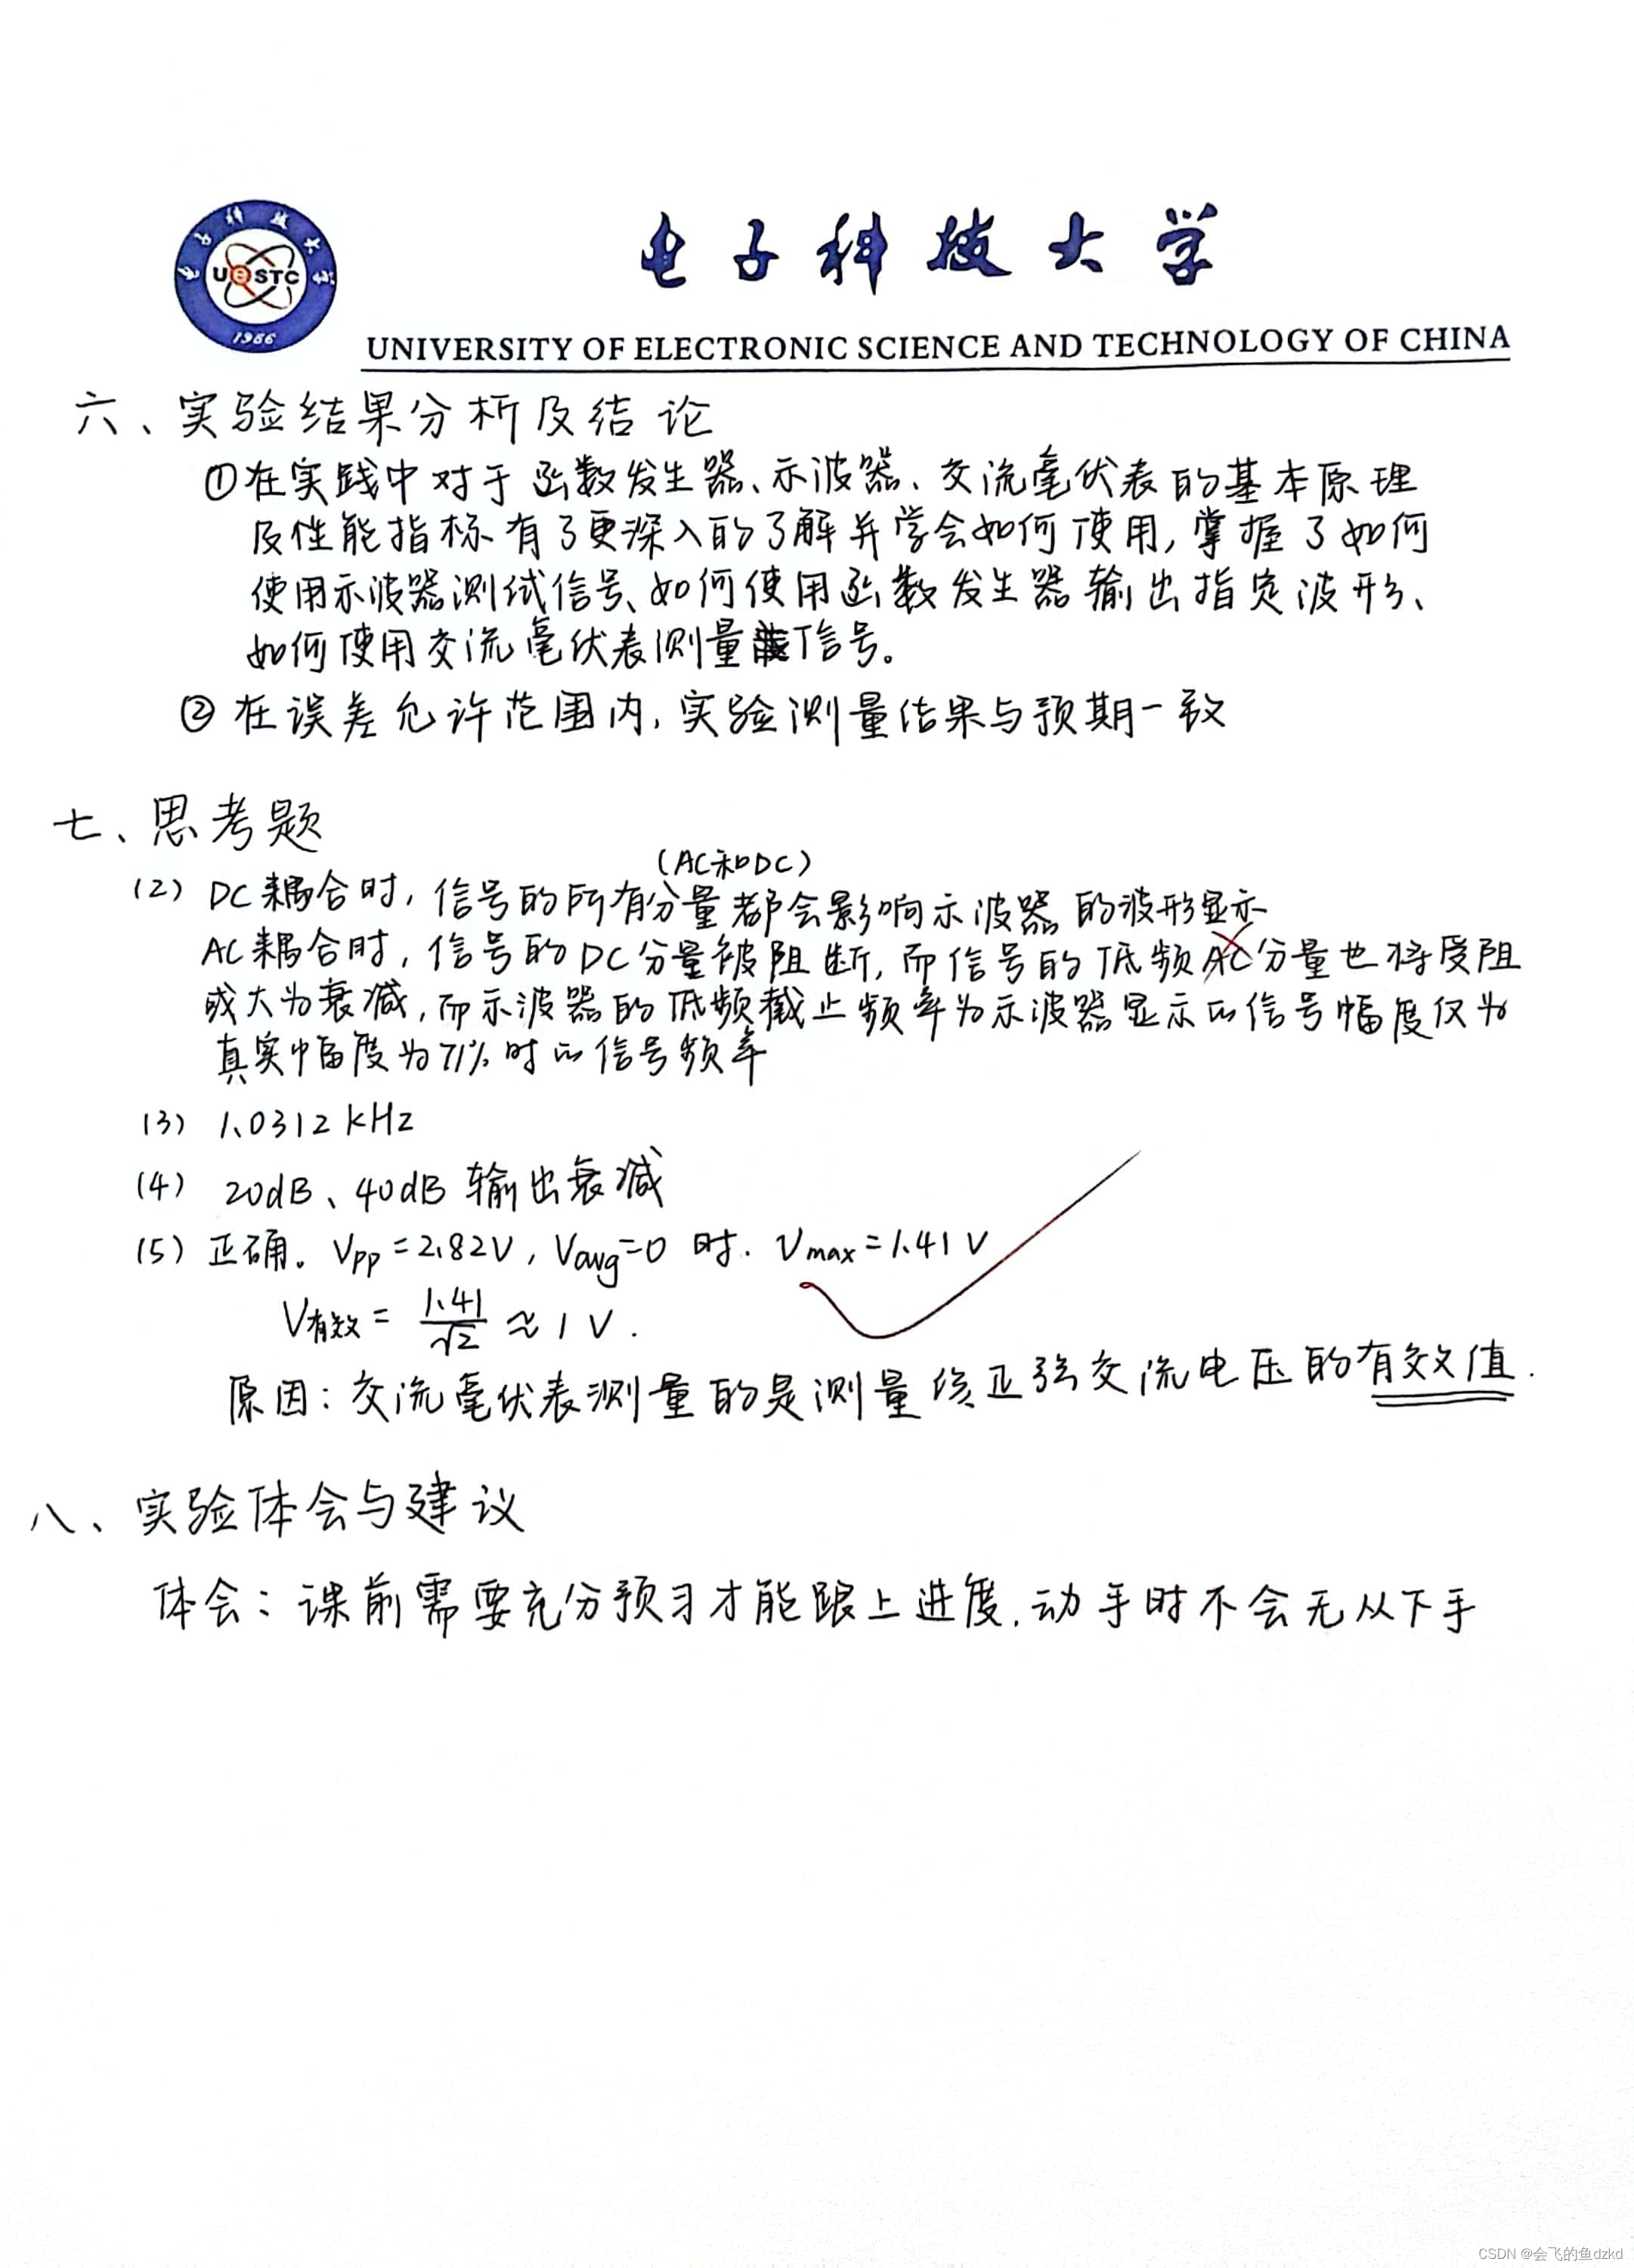 电子科技大学
UESTC
1956
电子科技大学
UNIVERSITY OF ELECTRONIC SCIENCE AND TECHNOLOGY OF CHINA
六、实验结果分析及结论
①在实践中对于函数发生器、示波器、交流毫伏表的基本原理
及性能指标有了更深入的了解并学会如何使用,掌握了如何
使用示波器测试信号、如何使用函数发生器输出指定波形、
如何使用交流毫伏表测量信号。
②在误差允许范围内,实验测量结果与预期一致
七、思考题
(AC和DC)
(2) DC耦合时,信号的所有分量都会影响示波器的波形显示
AC耦合时,信号的DC分量被阻断,而信号的低频AC分量也将受阻
或大为衰减,而示波器的低频截止频率为示波器显示的信号幅度仅为
真实幅度为71%时的信号频率
(3) 1.0312kHz
(4) 20dB、40dB输出衰减
(5) 正确。Vpp=2.82V, Vavg=0 时. Vmax=1.41V
V有效= 1.41/√2 ≈ 1V.
原因:交流毫伏表测量的是测量正弦交流电压的有效值.
八、实验体会与建议
体会:课前需要充分预习才能跟上进度,动手时不会无从下手
CSDN @会飞的鱼dzkd